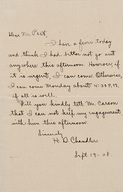 Dear Mr. Peet
I have a fever today
and think I had better not go out
anywhere this afternoon. However,
if it is urgent, I can come. Otherwise,
I can come Monday about
if all is well.
Will you kindly tell Mr. Carson
that I can not keep my engagement
with him this afternoon.
Sincerely
H. D. Chandler
Sept. 19-08.